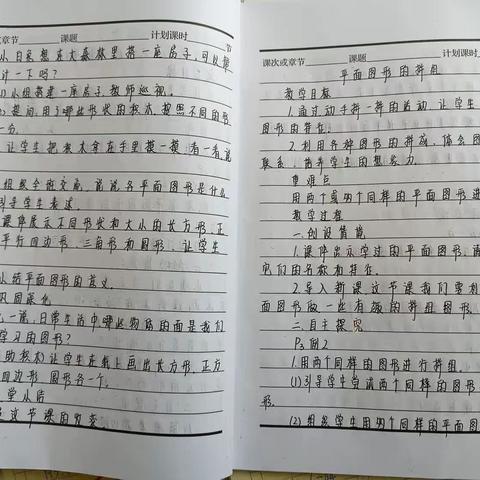 次或章节 课题 计划课时 节
小白呆想在大森林里搭一座房子,可以帮
计一下吗?
小组搭建一座房子,教师巡视。
提问:用了哪些形状的积木,按照不同的形
一台。
让学生把积木拿在手里摸一摸,看一看,说
组织全班交流,说说各平面图形是什么
引导学生表述
课件展示不同形状和大小的长方形、正
平行四边形、三角形和圆形,让学生
小结平面图形的含义。
巩固深化
说一说,日常生活中,哪些物体的面是我们
学习的图形?
助积木)让学生在纸上画出长方形、正方
四边形 圆形各一个。
堂小结
这节课的收获
课次或章节 课题 计划课时
平面图形的拼组
教学目标
1.通过动手拼一拼的活动,让学生
图形的特征。
2.利用各种图形的拼成,体会图
联系,培养学生的想象力。
重难点
用两个或多个同样的平面图形进
教学过程
一.创设情境
1.课件出示学过的平面图形,请
它们的名称和特征。
2.导入新课这节课我们要利
面图形做一些有趣的拼组图形。
二.自主探究
P3 例2
1.用两个同样的图形进行拼组。
(1)引导学生尝试两个同样的图形
形。
(2)组织学生用两个同样的平面图